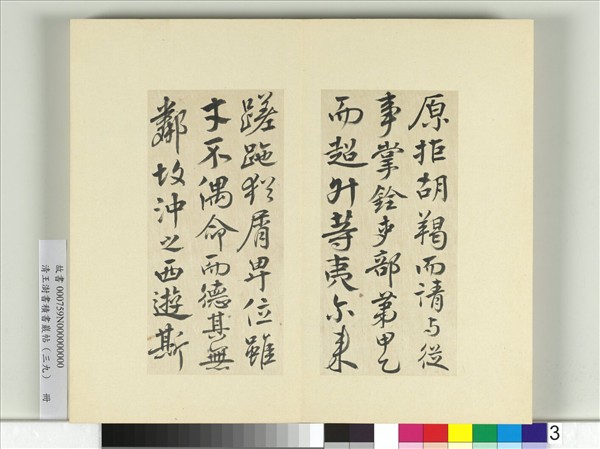 原拒胡羯而請与從
事掌銓吏部第甲乙
而超升等夷尔来
蹉跎猶屑卑位雖
才不偶命而德其無
鄰故沖之西遊斯
故書 000759N00000000
清王澍書積書巖帖（三九） 冊
3